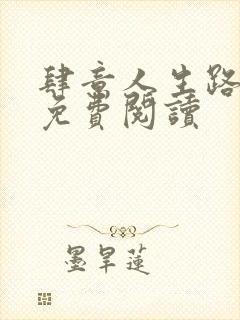 肆意人生路
免費閱讀
墨旱蓮